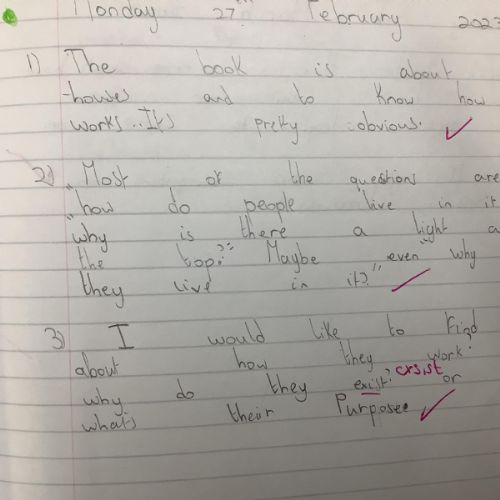 Monday 27th February 2023
1) The book is about
houses and to know how
works.. It's pretty obvious.
2) "Most of the questions are
"how do people live in it
"why is there a light a
the top?" Maybe even "why
they live in it?"
3) I would like to find
about how they work?
crsist
why do they exist? or
what's their Purpose